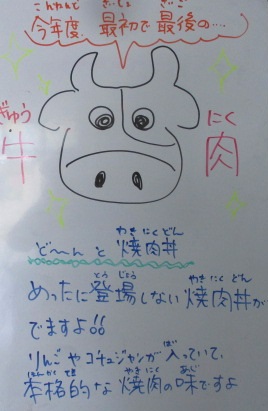 こんねんど さいしょ さいご
今年度、最初で最後の…
ぎゅう にく
牛 肉
やき にく どん
ど〜んと 焼肉丼
とうじょう やき にく どん
めったに登場しない焼肉丼が
でますよ!!
はい
りんごやコチュジャンが入っていて、
ほんかくてき やき にく あじ
本格的な焼肉の味ですよ